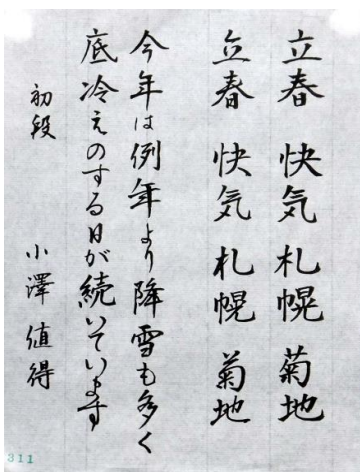 立春 快気 札幌 菊地
立春 快気 札幌 菊地
今年は例年より降雪も多く
底冷えのする日が続いています
初段 小澤 値得
311